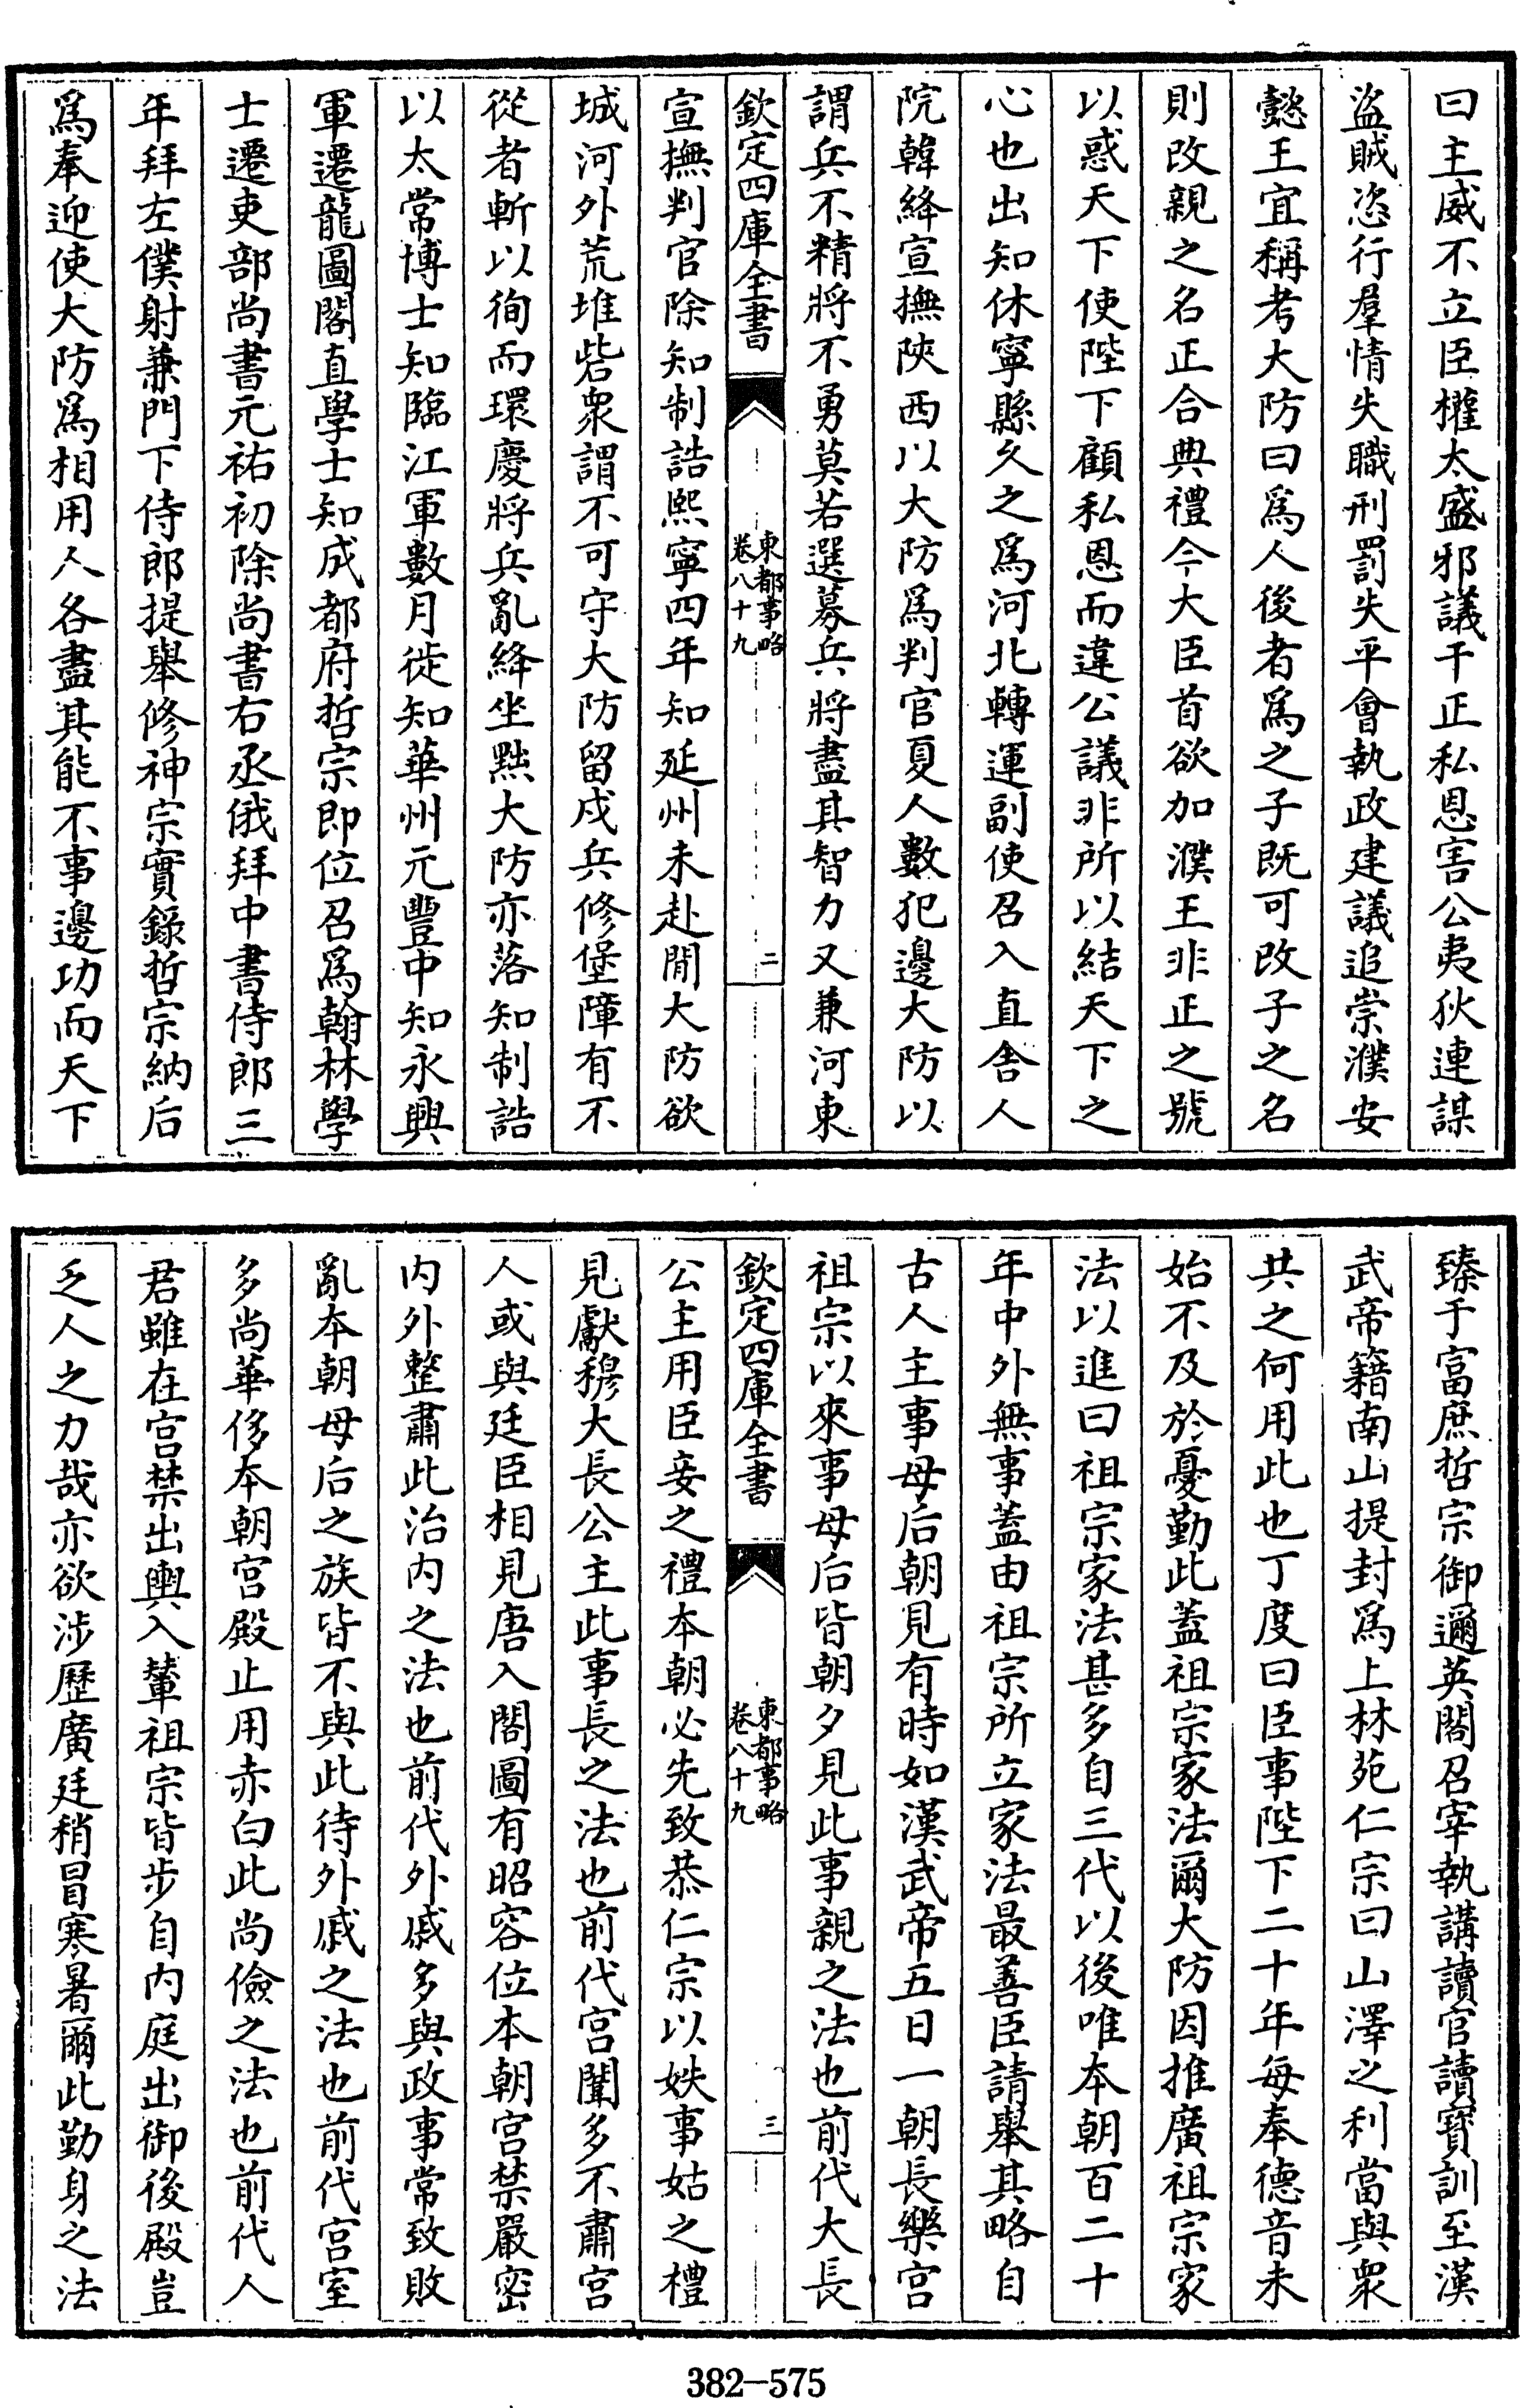 曰主威不立臣權太盛邪議干正私恩害公夷狄連謀
盜賊恣行羣情失職刑罰失平會執政建議追崇濮安
懿王宜稱考大防曰爲人後者爲之子既可改子之名
則改親之名正合典禮今大臣首欲加濮王非正之號
以惑天下使陛下顧私恩而違公議非所以結天下之
心也出知休寧縣久之爲河北轉運副使召入直舍人
院韓絳宣撫陝西以大防爲判官夏人數犯邊大防以
謂兵不精將不勇莫若選募兵將盡其智力又兼河東
欽定四庫全書
東都事略
卷八十九
二
宣撫判官除知制誥熙寧四年知延州未赴閒大防欲
城河外荒堆砦衆謂不可守大防留戍兵修堡障有不
從者斬以徇而環慶將兵亂絳坐黜大防亦落知制誥
以太常博士知臨江軍數月徙知華州元豐中知永興
軍遷龍圖閣直學士知成都府哲宗即位召爲翰林學
士遷吏部尚書元祐初除尚書右丞俄拜中書侍郎三
年拜左僕射兼門下侍郎提舉修神宗實錄哲宗納后
爲奉迎使大防爲相用人各盡其能不事邊功而天下
臻于富庶哲宗御邇英閣召宰執講讀官讀寶訓至漢
武帝籍南山提封爲上林苑仁宗曰山澤之利當與衆
共之何用此也丁度曰臣事陛下二十年每奉德音未
始不及於憂勤此蓋祖宗家法爾大防因推廣祖宗家
法以進曰祖宗家法甚多自三代以後唯本朝百二十
年中外無事蓋由祖宗所立家法最善臣請舉其略自
古人主事母后朝見有時如漢武帝五日一朝長樂宮
祖宗以來事母后皆朝夕見此事親之法也前代大長
欽定四庫全書
東都事略
卷八十九
三
公主用臣妾之禮本朝必先致恭仁宗以姪事姑之禮
見獻穆大長公主此事長之法也前代宮闈多不肅宮
人或與廷臣相見唐入閣圖有昭容位本朝宮禁嚴密
內外整肅此治內之法也前代外戚多與政事常致敗
亂本朝母后之族皆不與此待外戚之法也前代宮室
多尚華侈本朝宮殿止用赤白此尚儉之法也前代人
君雖在宮禁出輿入輦祖宗皆步自內庭出御後殿豈
乏人之力哉亦欲涉歷廣廷稍冒寒暑爾此勤身之法
382-575